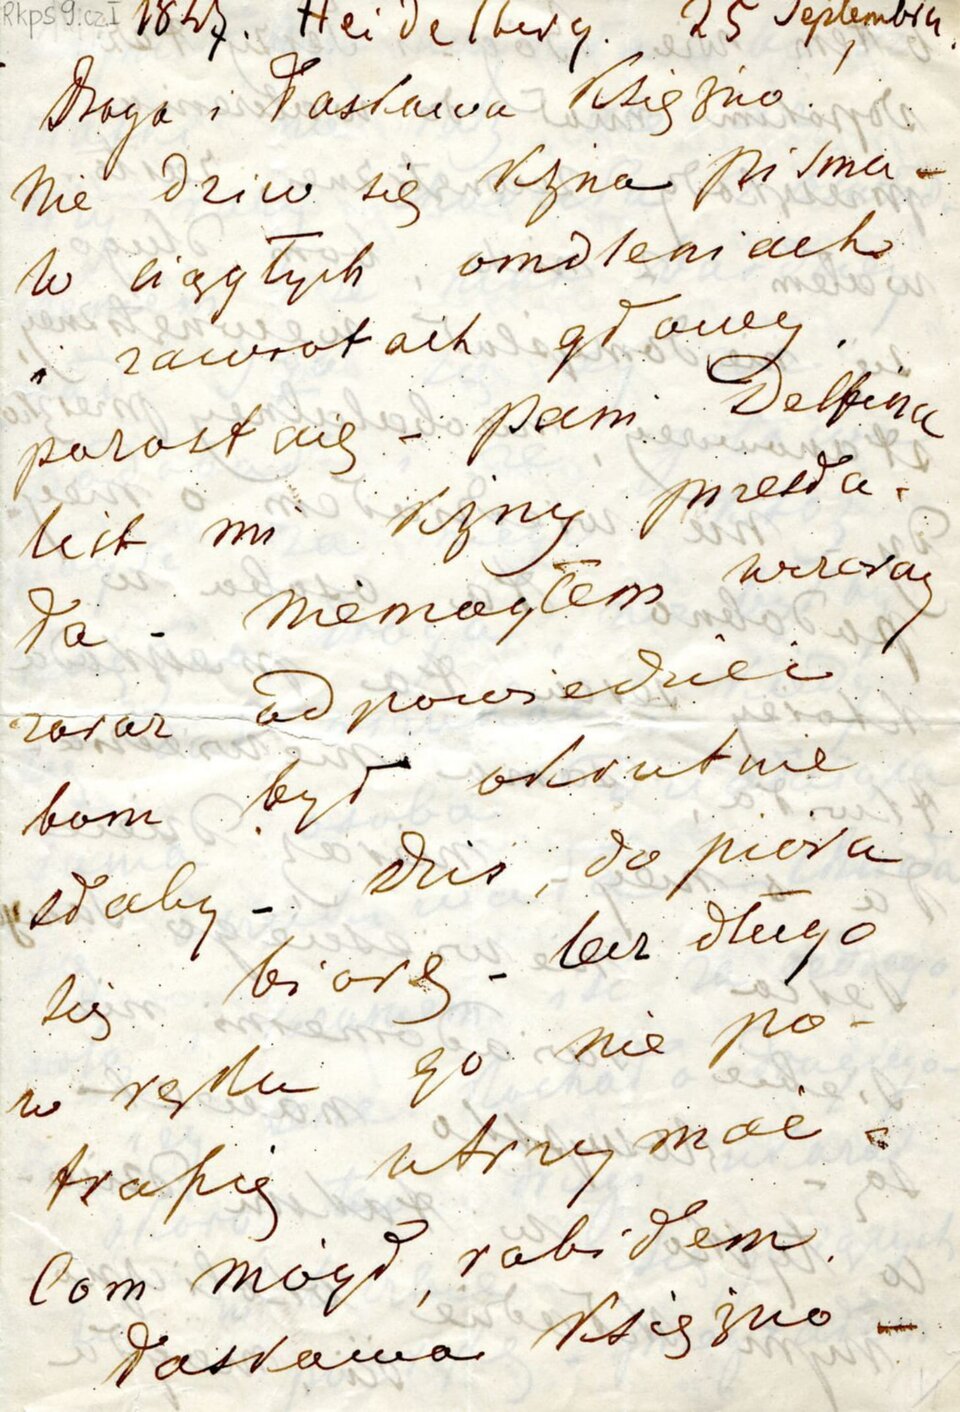 Rkps 9: cz. I
1847. Heidelberg. 25 Septembra.
Droga i Łaskawa Księżno.
Nie dziw się Xżna pismu -
w ciągłych omdleniach
i zawrotach głowy
pozostaię - pani Delfina
list mi Xżny przesła-
ła - niemogłem wczoray
zaraz odpowiedzieć
bom był okrutnie
słaby - Dziś, do pióra
się biorę - lecz długo
w ręku go nie po-
trafię utrzymać -
Com mógł, robiłem.
Łaskawa Księżno -